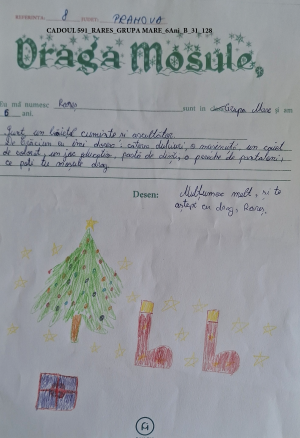 REFERINTA: 8 JUDET: PRAHOVA
CADOUL 591_RARES_GRUPA MARE_6Ani_B_31_128
Dragă Moșule,
Eu mă numesc Rareș sunt în Grupa Mare și am
6 ani.
Sunt un băiețel cuminte și ascultător.
De Crăciun eu îmi doresc: câteva dulciuri, o mașinuță, un caiet
de colorat, un joc, pastă de dinți, o pereche de pantaloni,
ce poți tu Moșule drag.
Desen:
Mulțumesc mult, și te
aștept cu drag, Rareș.